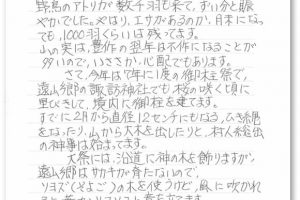 野鳥のアトリが数千羽も来て、ずい分と賑
やかでした。やはり、エサがあるのか、月末になっ
ても、1,000羽くらいは残ってます。
山の実は、豊作の翌年は不作になることが
多いので、いささか、心配でもあります。
さて、今年は7年に1度の御柱祭で、
遠山郷の諏訪神社でも桜の咲く頃に
里びきして、境内に御柱を建てます。
すでに2月から直径12センチにもなる、ひき縄
をなったり、山から大木を出したりと、村人総出
の神事は始まってます。
大祭には、沿道に神の木を飾りますが、
遠山郷はサカキが育たないので、
ソヨゴ(そよごう)の木を使うけど、風に吹かれ